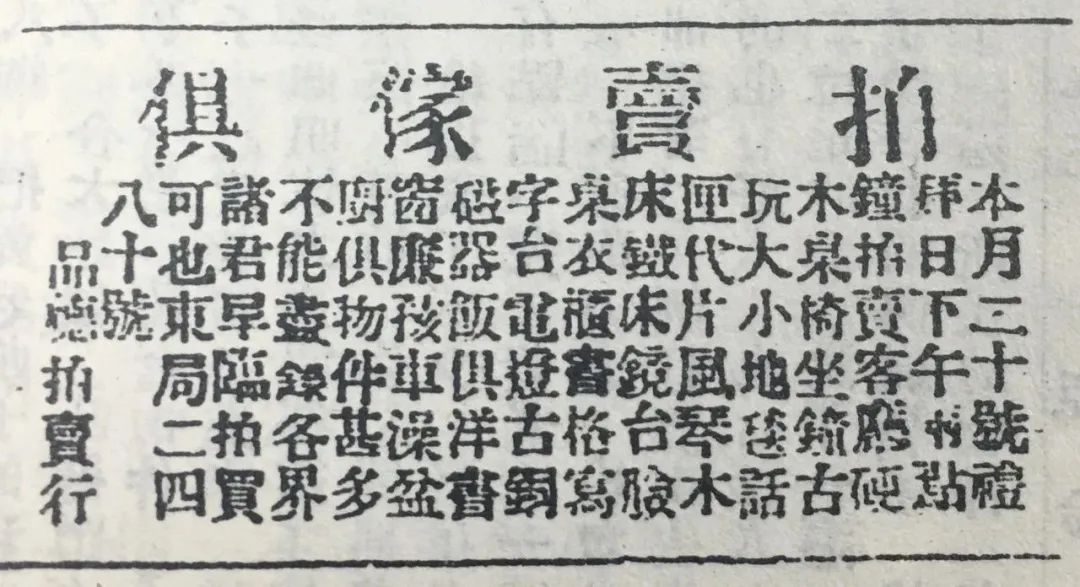 拍賣傢俱
本月三十號禮
拜日下午點
鐘拍賣客廳硬
木桌椅坐鐘古
玩大小地毯話
匣代片風琴木
床鐵床鏡台
衣櫃書格寫
字台電燈古銅
磁器飯俱洋書
窗簾孩車澡盆
廚俱物件甚多
不能盡錄各界
諸君早臨拍買
可也東局二四
八十號
品拍賣行